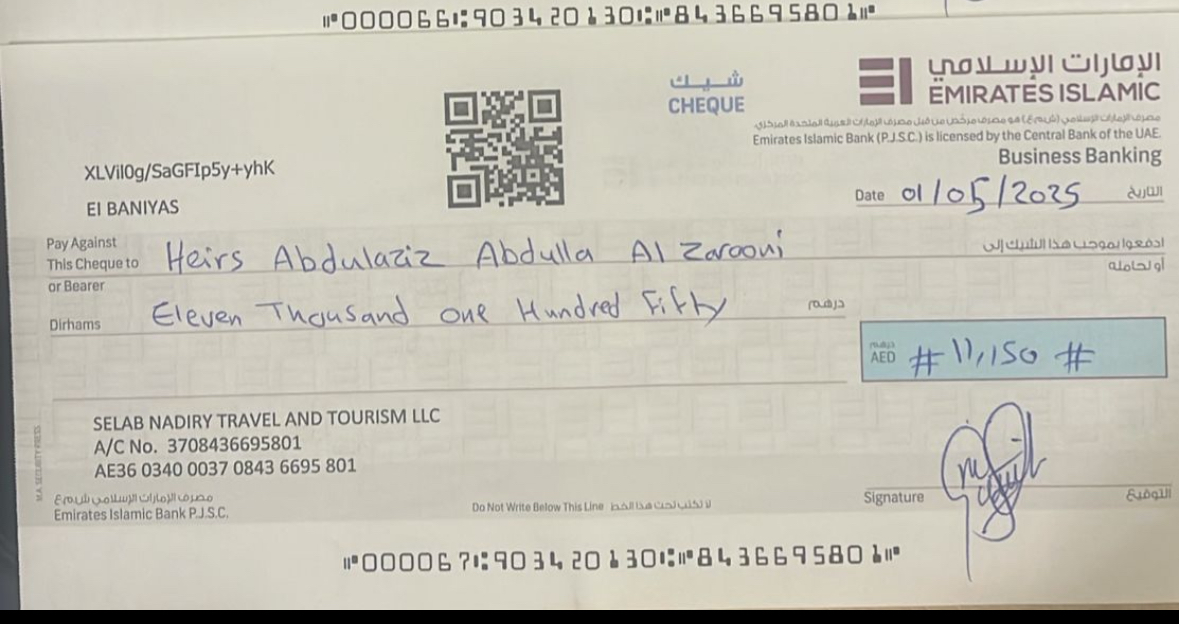 ⑈000066⑆903420130⑆⑈8436695801⑈
شيك
CHEQUE
الإمارات الإسلامي
EMIRATES ISLAMIC
مصرف الإمارات الإسلامي (ش.م.ع) هو مصرف مرخّص من قبل مصرف الإمارات العربية المتحدة المركزي
Emirates Islamic Bank (P.J.S.C.) is licensed by the Central Bank of the UAE.
Business Banking
XLVil0g/SaGFIp5y+yhK
EI BANIYAS
Date 01/05/2025 التاريخ
Pay Against
This Cheque to
or Bearer
Heirs Abdulaziz Abdulla Al Zarooni
ادفعوا بموجب هذا الشيك إلى
أو لحامله
Dirhams Eleven Thousand one Hundred Fifty درهم
درهم
AED # 11,150 #
SELAB NADIRY TRAVEL AND TOURISM LLC
A/C No. 3708436695801
AE36 0340 0037 0843 6695 801
مصرف الإمارات الإسلامي ش.م.ع
Emirates Islamic Bank P.J.S.C.
M.A. SECURITY PRESS
Do Not Write Below This Line لا تكتب تحت هذا الخط
Signature التوقيع
⑈000067⑆903420130⑆⑈8436695801⑈